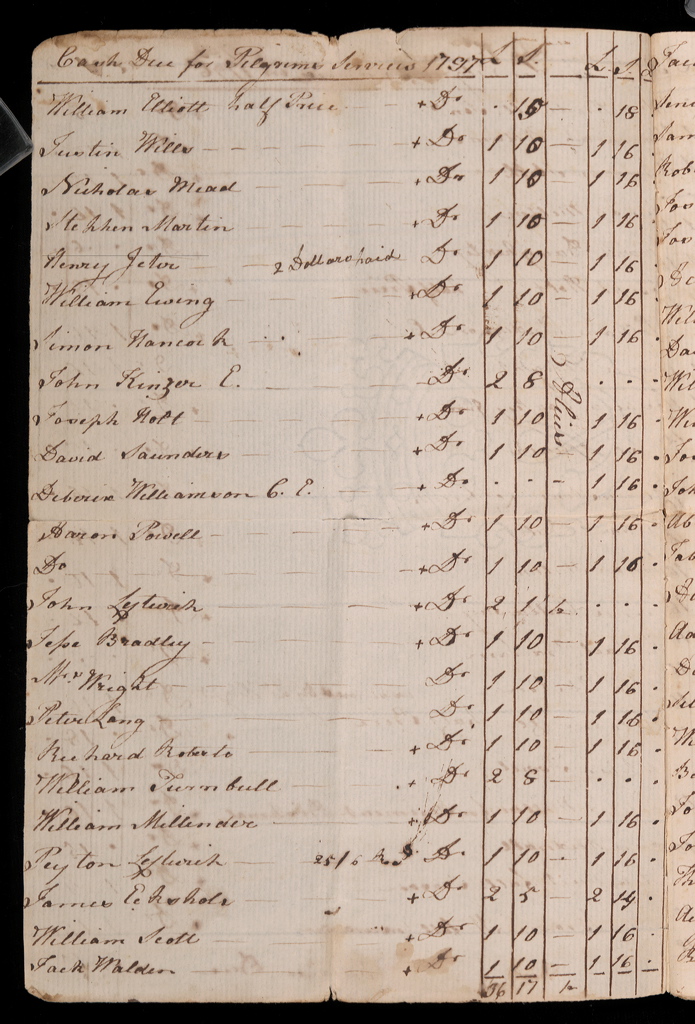 Cash Due for Pilgrims Services 1797 L S. L S. D
William Elliott half Price + Do . 15 . 18
Justin Wills + Do 1 10 1 16
Nicholas Mead + Do 1 10 1 16
Stephen Martin + Do 1 10 1 16
Henry Jeter 2 Dollars paid Do 1 10 1 16
William Ewing + Do 1 10 1 16
Simon Hancock + Do 1 10 1 16
John Kinzer E. Do 2 8 . .
Joseph Holt + Do 1 10 1 16
David Saunders + Do 1 10 1 16
Williamson C. E. + Do . . 1 16
Aaron Powell + Do 1 10 1 16
Do + Do 1 10 1 16
John Leftwich + Do 2 1 . . .
Jesse Bradley + Do 1 10 1 16
Mrs Wright Do 1 10 1 16
Peter Lang Do 1 10 1 16
Richard Roberts + Do 1 10 1 16
William Turnbull + Do 2 8 . .
William Millender + Do 1 10 1 16
Peyton Leftwich 25/6 Do 1 10 1 16
James Eckshols + Do 2 5 2 14
William Scott + Do 1 10 1 16
Jack Walden + Do 1 10 1 16
36 17